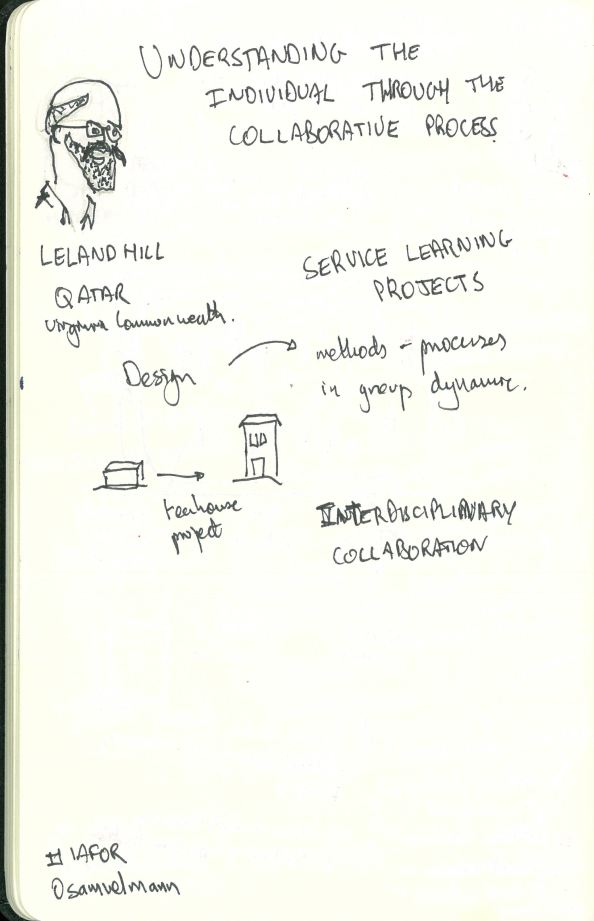 UNDERSTANDING THE
INDIVIDUAL THROUGH THE
COLLABORATIVE PROCESS
LELAND HILL
QATAR
Virginia Commonwealth.
SERVICE LEARNING
PROJECTS
Design
methods - processes
in group dynamic.
teahouse
project
INTERDISCIPLINARY
COLLABORATION
# IAFOR
@samuelmann